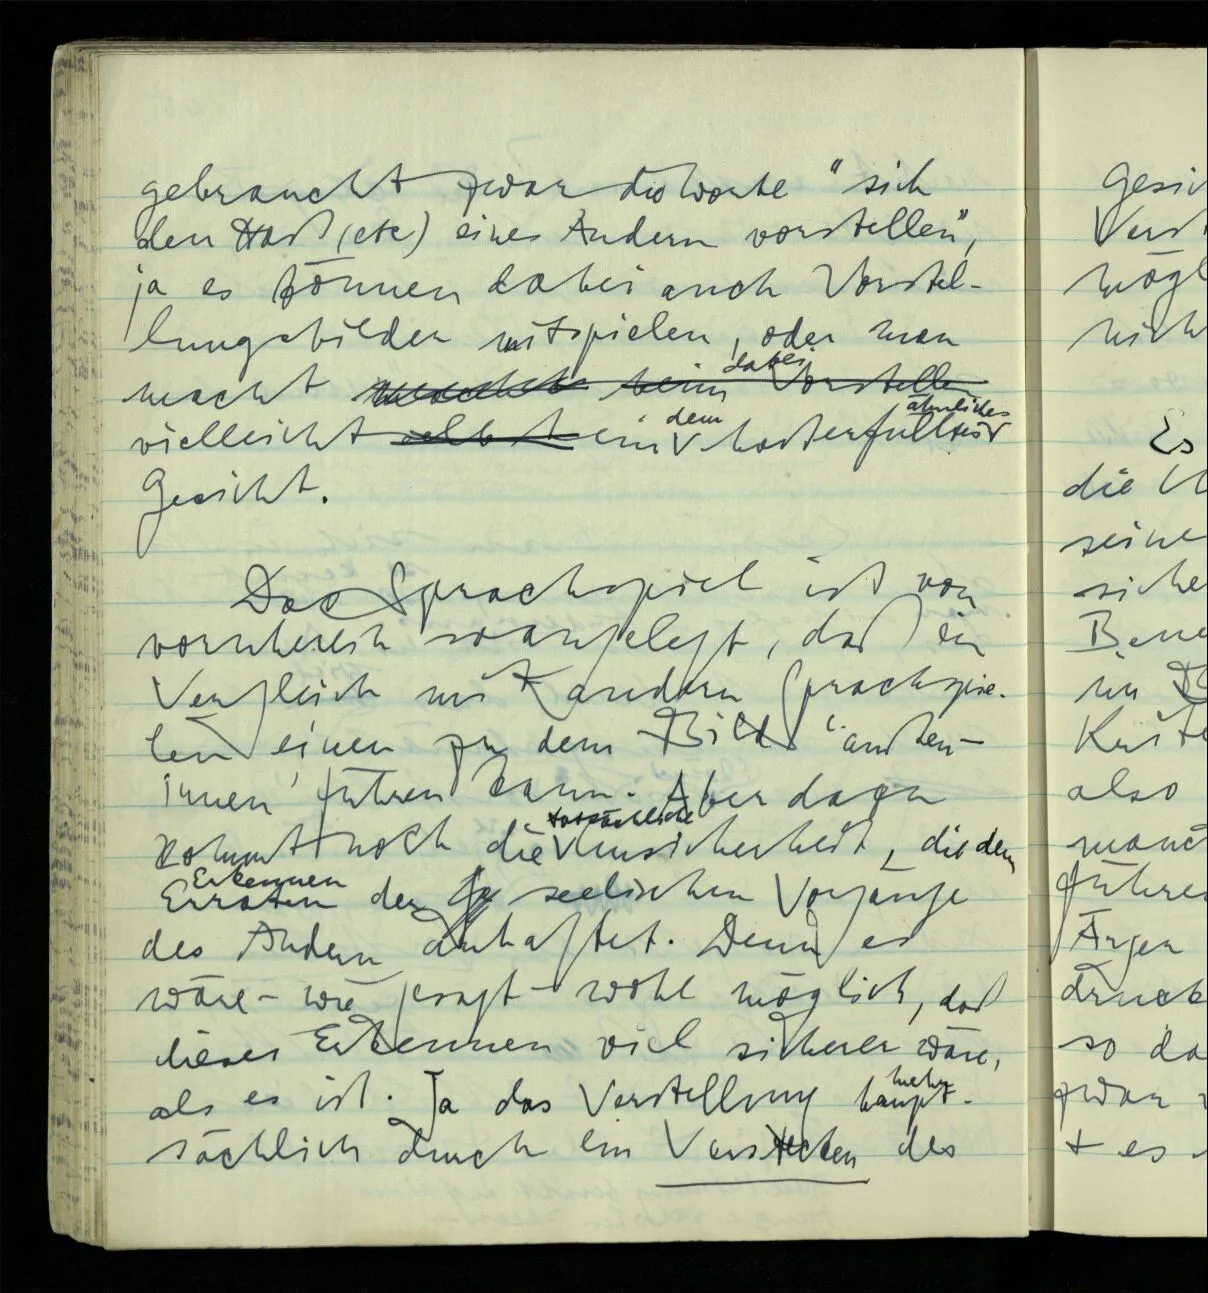 gebraucht zwar die Worte "sich
den Haß (etc) eines Andern vorstellen",
ja es können dabei auch Vorstel-
lungsbilder mitspielen, oder man
macht beim Vorstellen dabei
vielleicht selbst ein dem haßerfüllten ähnliches
Gesicht.
Das Sprachspiel ist von
vornherein so angelegt, daß ein
Vergleich mit andern Sprachspie-
len einen zu dem Bild "außen-
innen" führen kann. Aber dazu
kommt noch die tatsächliche Unsicherheit, die dem
Erraten Erkennen der seelischen Vorgänge
des Andern anhaftet. Denn es
wäre – wie gesagt – wohl möglich, daß
dieses Erkennen viel sicherer wäre,
als es ist. Ja das Verstellung mehr haupt-
sächlich durch ein Verstecken des
Gesi
Vers
mögl
nich
Es
die
seine
siche
im
also
führe
Ärger
drück
so da
zwar